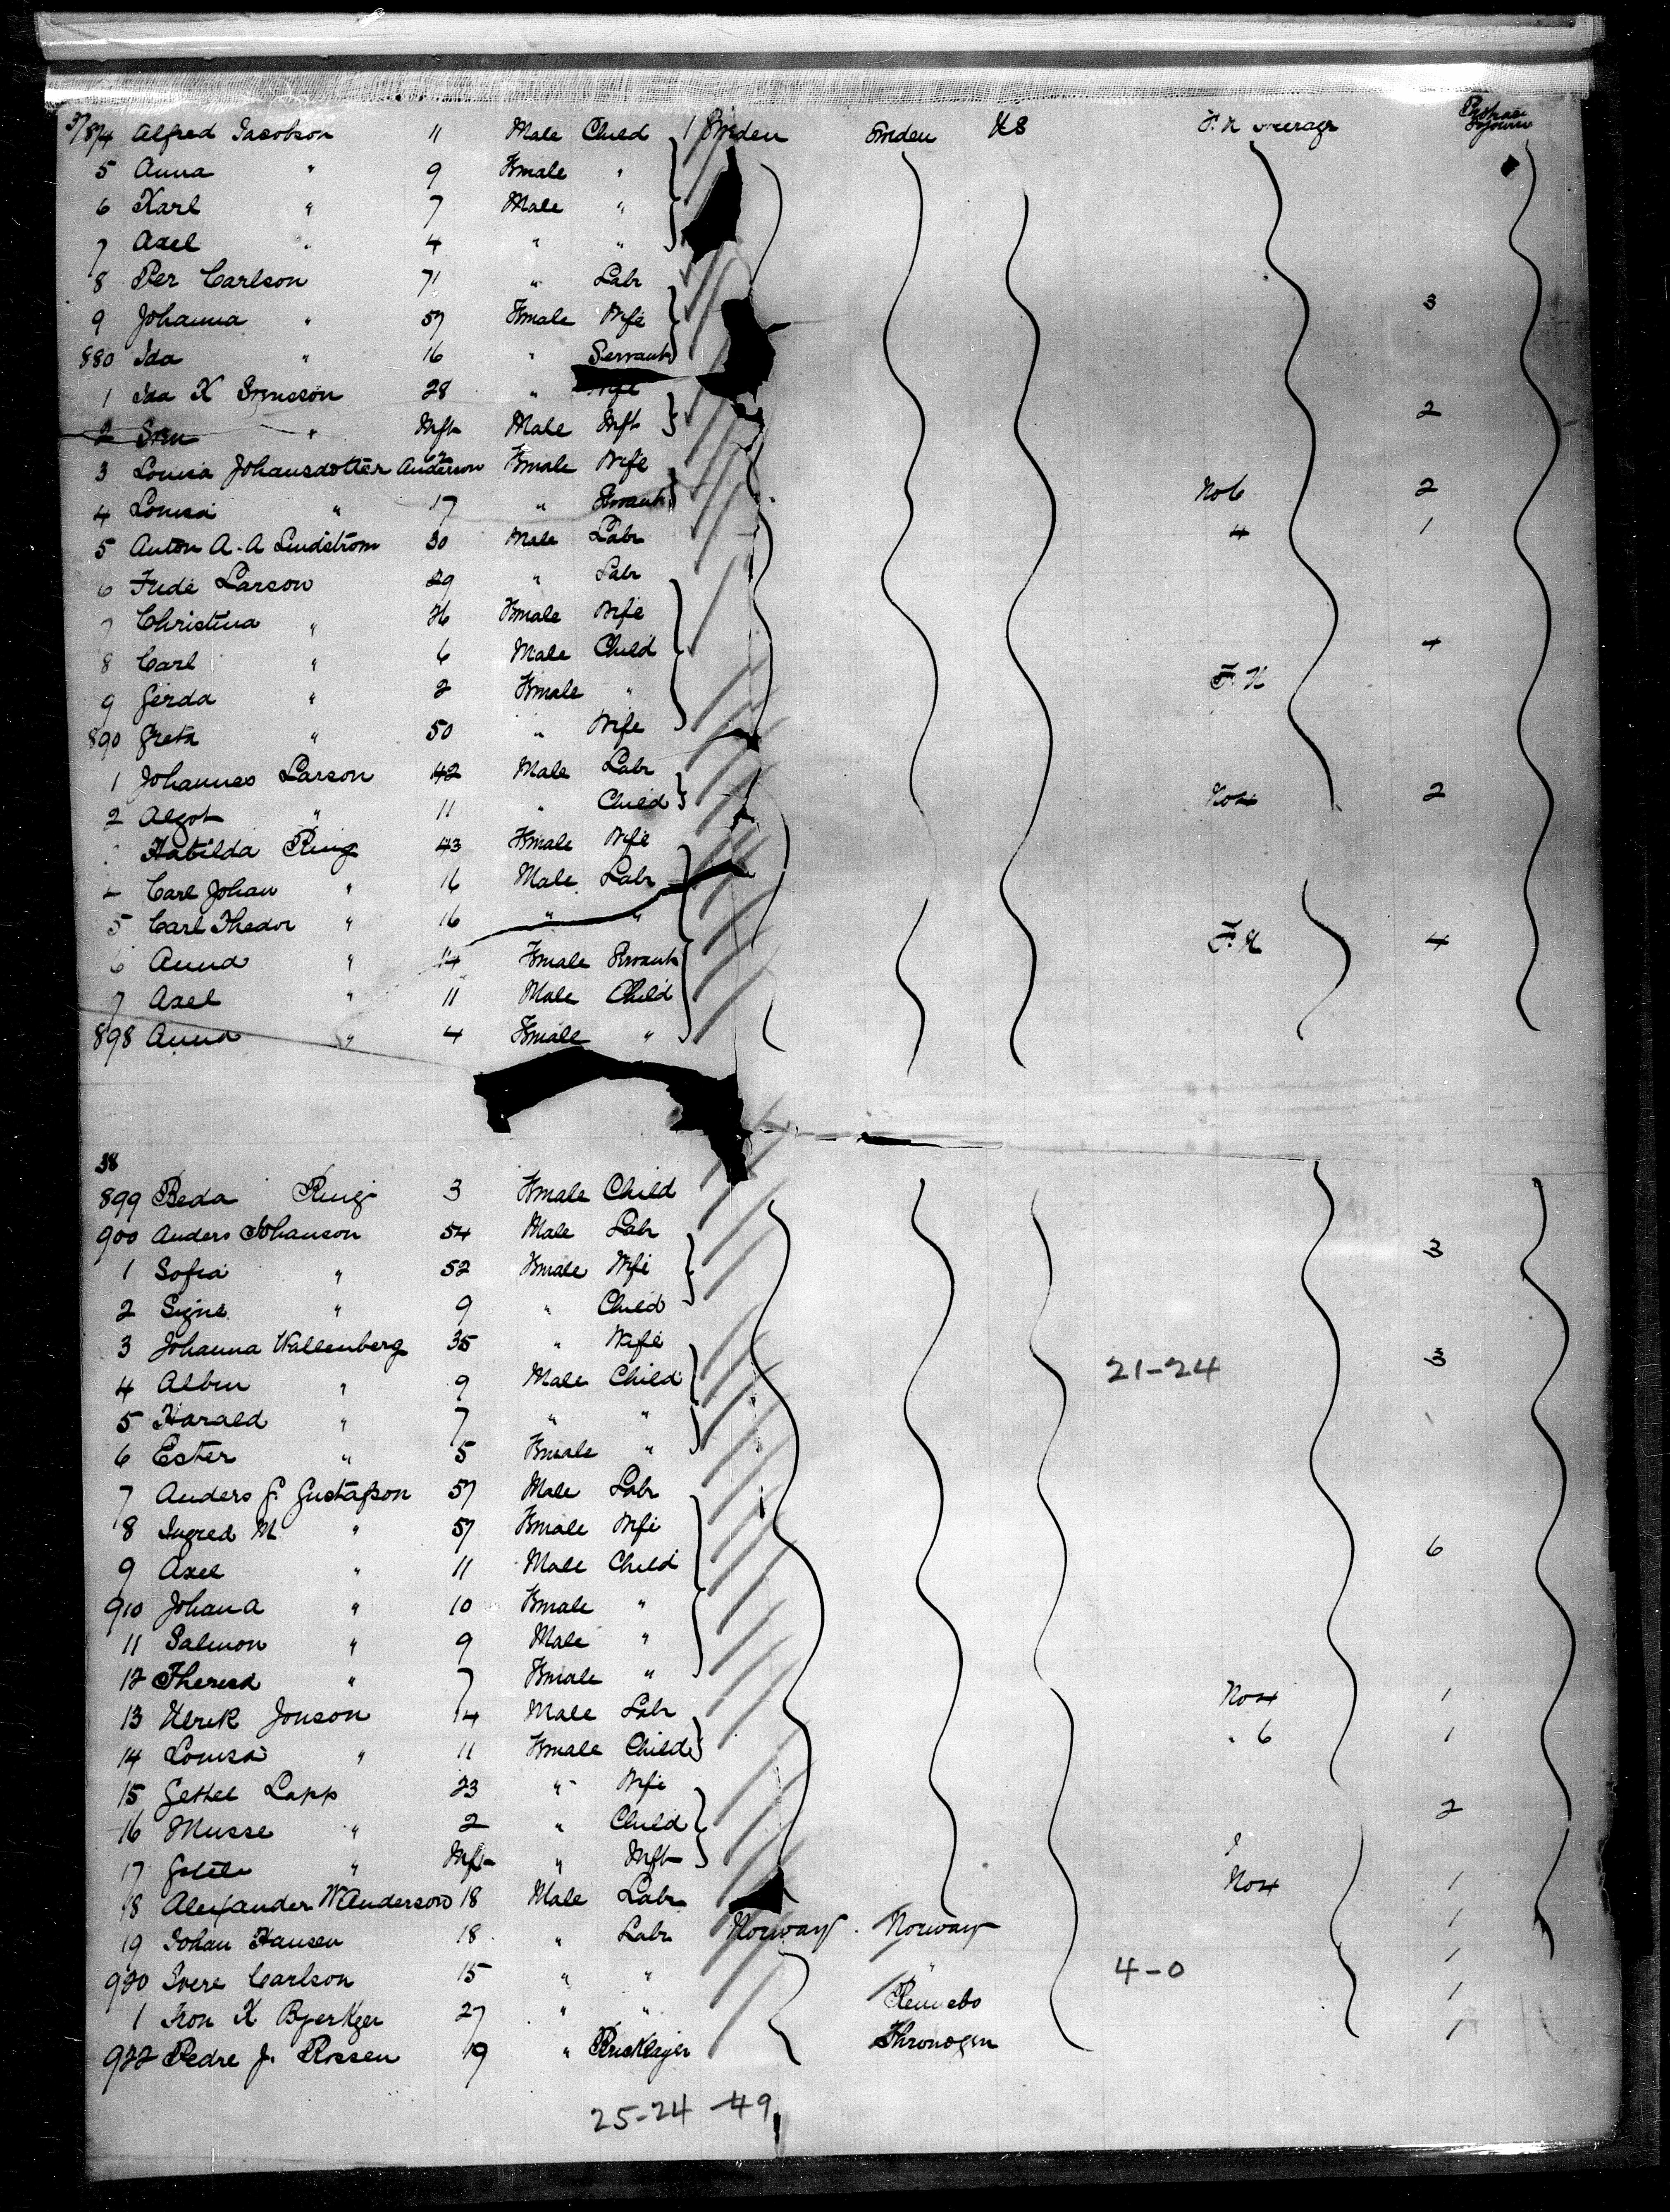 37/874 Alfred Jacobson 11 Male Child Sweden Sweden US F.N Steerage
5 Anna " 9 Female "
6 Karl " 7 Male "
7 Axel " 4 " "
8 Per Carlson 71 " Labr
9 Johanna " 57 Female Wife 3
880 Ida " 16 " Servant
1 Ida K Svensson 28 " Wife 2
2 Sven " Inft Male Inft
3 Louisa Johansdotter Anderson Female Wife
4 Louisa " 17 " Servant No 6 2
5 Anton A. A Lindstrom 30 Male Labr 4 1
6 Frede Larson 29 " Labr
7 Christina " 26 Female Wife
8 Carl " 6 Male Child 4
9 Gerda " 2 Female " F. N
890 Greta " 50 " Wife
1 Johannes Larson 42 Male Labr
2 Algot " 11 " Child No 4 2
Matilda Ring 43 Female Wife
4 Carl Johan " 16 Male Labr
5 Carl Thedor " 16 " " F. N 4
6 Anna " 14 Female Servant
7 Axel " 11 Male Child
898 Anna " 4 Female "
38
899 Beda Ring 3 Female Child
900 Anders Johanson 54 Male Labr 3
1 Sofia " 52 Female Wife
2 Signe " 9 " Child
3 Johanna Wallenberg 35 " Wife 3
4 Albin " 9 Male Child 21-24
5 Harald " 7 " "
6 Ester " 5 Female "
7 Anders G. Gustafson 57 Male Labr
8 Ingred M " 57 Female Wife 6
9 Axel " 11 Male Child
910 Johana " 10 Female "
11 Salmon " 9 Male "
12 Theresa " 7 Female "
13 Ulrek Jonson 14 Male Labr No 4 1
14 Louisa " 11 Female Child " 6 1
15 Gettel Lapp 23 " Wife
16 Musse " 2 " Child 2
17 " Inft " Inft
18 Alexander W Anderson 18 Male Labr No 4 1
19 Johan Hansen 18 " Labr Norway Norway 1
920 Ivere Carlson 15 " " " 4-0 1
1 Iron K Bjerkger 27 " " Rennebo 1
922 Pedre J. Rossen 19 " Bricklayer Thronogen 1
25-24 49